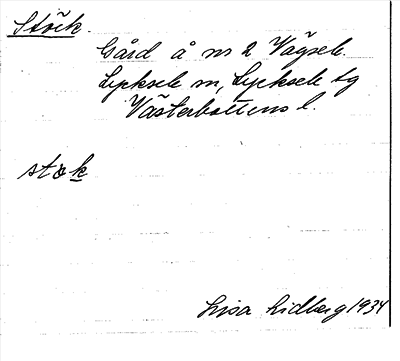 Stök.
Gård å nr 2 Vägsele
Lycksele sn, Lycksele tg
Västerbottens l.
stək
Lisa Lidberg 1934